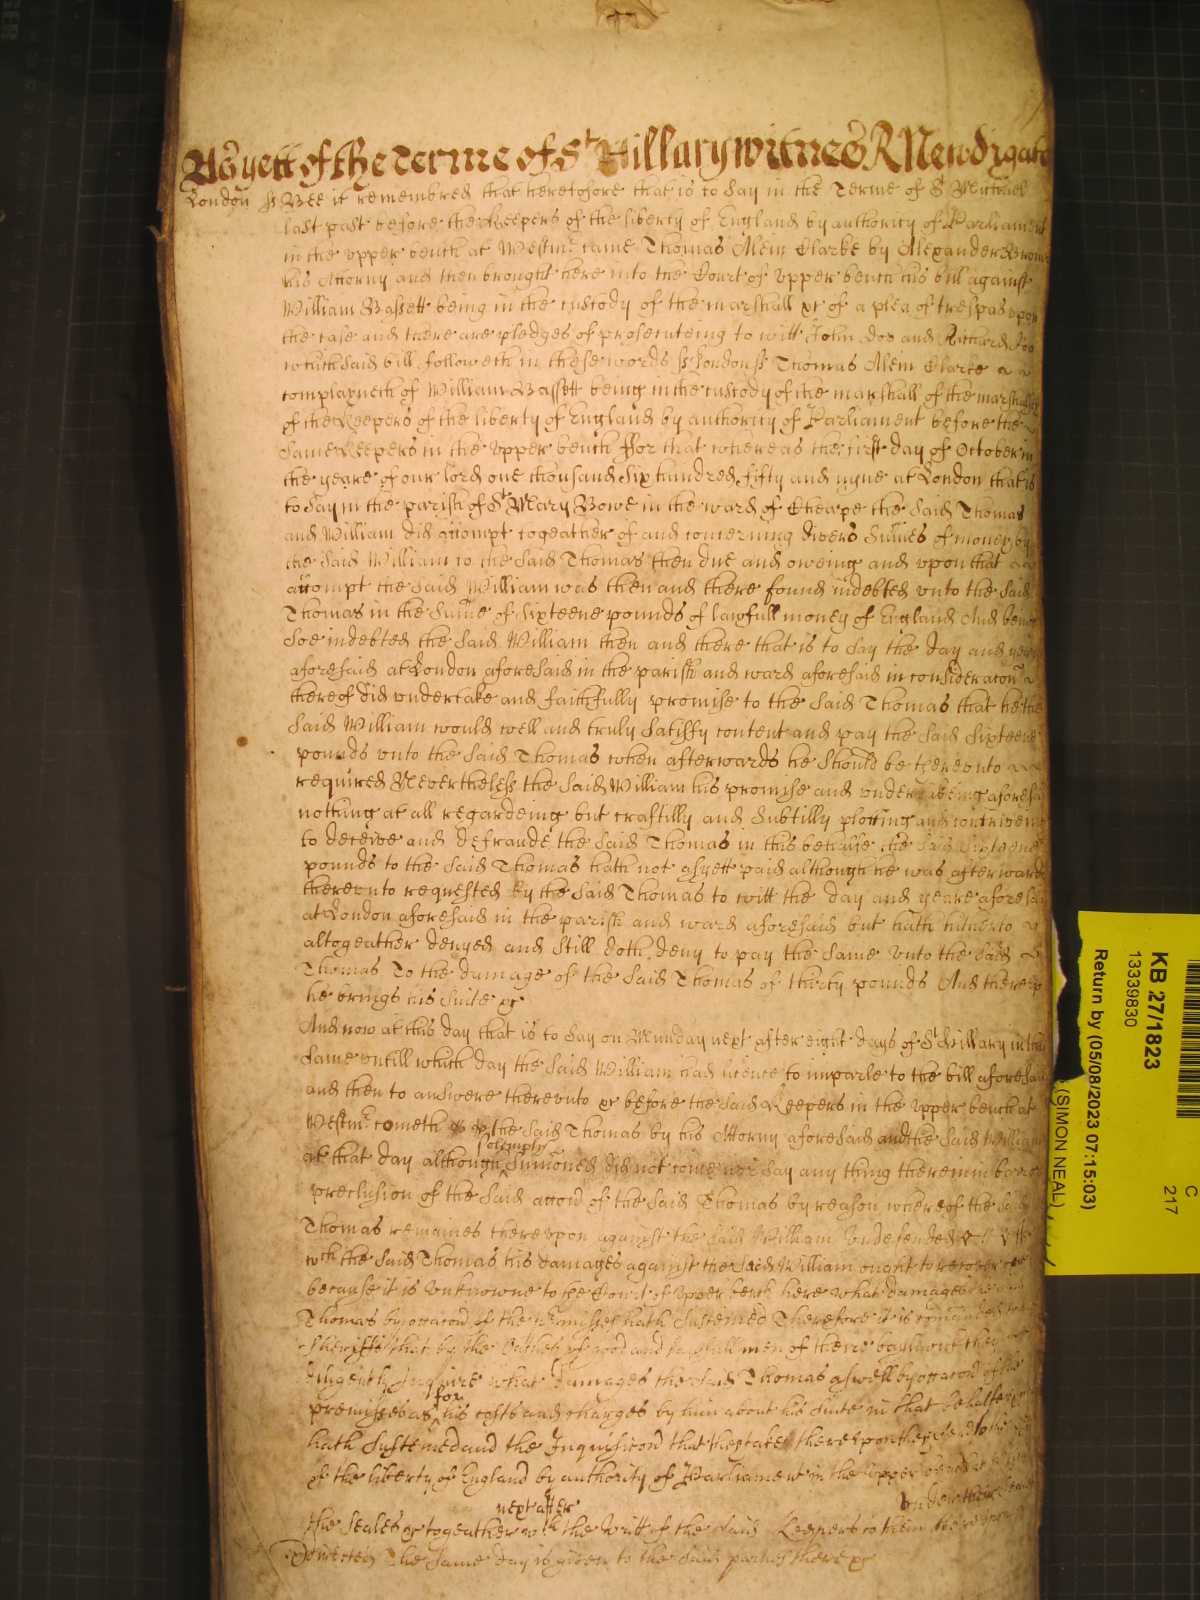 As yett of the Terme of St Hillary witnes R Newdigate
London ss Bee it remembred that heretofore that is to say in the Terme of St Michael
last past before the Keepers of the liberty of England by authority of Parliament
in the vpper bench at Westmr came Thomas Mein Clarke by Alexander
his Attorny and then brought here into the Court of vpper bench his bill against
William Bassett being in the custody of the marshall &c of a plea of trespas vpon
the case and there are pledges of prosecuteing to witt John Doo and Richard Roo
which said bill followeth in these words ss London ss Thomas Mein Clarke
complayneth of William Bassett being in the custody of the marshall of the
of the Keepers of the liberty of England by authority of Parliament before the
same Keepers in the vpper bench ffor that whereas the first day of October in
the yeare of our lord one thousand six hundred fifty and nyne at London that is
to say in the parish of St Mary Bowe in the ward of Cheape the said Thomas
and William did accompt togeather of and concerning divers summes of money by
the said William to the said Thomas then due and oweing and vpon that
accompt the said William was then and there found indebted vnto the said
Thomas in the summe of sixteene pounds of lawfull money of England And being
soe indebted the said William then and there that is to say the day and yeare
aforesaid at London aforesaid in the parish and ward aforesaid in consideracon
thereof did vndertake and faithfully promise to the said Thomas that he the
said William would well and truly satisfy content and pay the said sixteene
pounds vnto the said Thomas when afterwards he should be therevnto
required Nevertheless the said William his promise and vndertakeing aforesaid
nothing at all regardeing but craftilly and subtilly plotting and contriveing
to deceive and defraude the said Thomas in this behalfe the said sixteene
pounds to the said Thomas hath not as yett paid although he was afterwards
therevnto requested by the said Thomas to witt the day and yeare aforesaid
at London aforesaid in the parish and ward aforesaid but hath hitherto
altogeather denyed and still doth deny to pay the same vnto the said
Thomas To the damage of the said Thomas of thirty pounds And
he brings his suite &c
And now at this day that is to say on Munday next after eight days of St Hillary in this
same vntill which day the said William had licence to imparle to the bill aforesaid
and then to answere therevnto &c before the said Keepers in the vpper bench at
Westmr cometh the said Thomas by his Attorny aforesaid and the said William
solemply
at that day although summoned did not come nor say any thing therein in
preclusion of the said accon of the said Thomas by reason whereof the said
Thomas remaines therevpon against the said William vndefended
wch the said Thomas his damages against the said William ought to recover
because it is vnknowne to the Court of vpper bench here what damages
Thomas by occacon of the premisses hath susteined Therefore it is commanded
Sheriffs that by the Oathes of good and lawfull men of theire baylywick they
diligently Inquire what damages the said Thomas aswell by occacon of the
for
premisses as his costs and charges by him about his suite in that behalfe
hath susteined and the Inquisicon that they take therevpon they send to
of the liberty of England by authority of Parliament in the vpper bench
next after vnder their
the seales &c togeather wth the writt of the said Keepers to them
directed The same day is given to the said parties there &c
KB 27/1823
13339830
Return by (05/08/2023 07:15:03)
(SIMON NEAL)
C
217